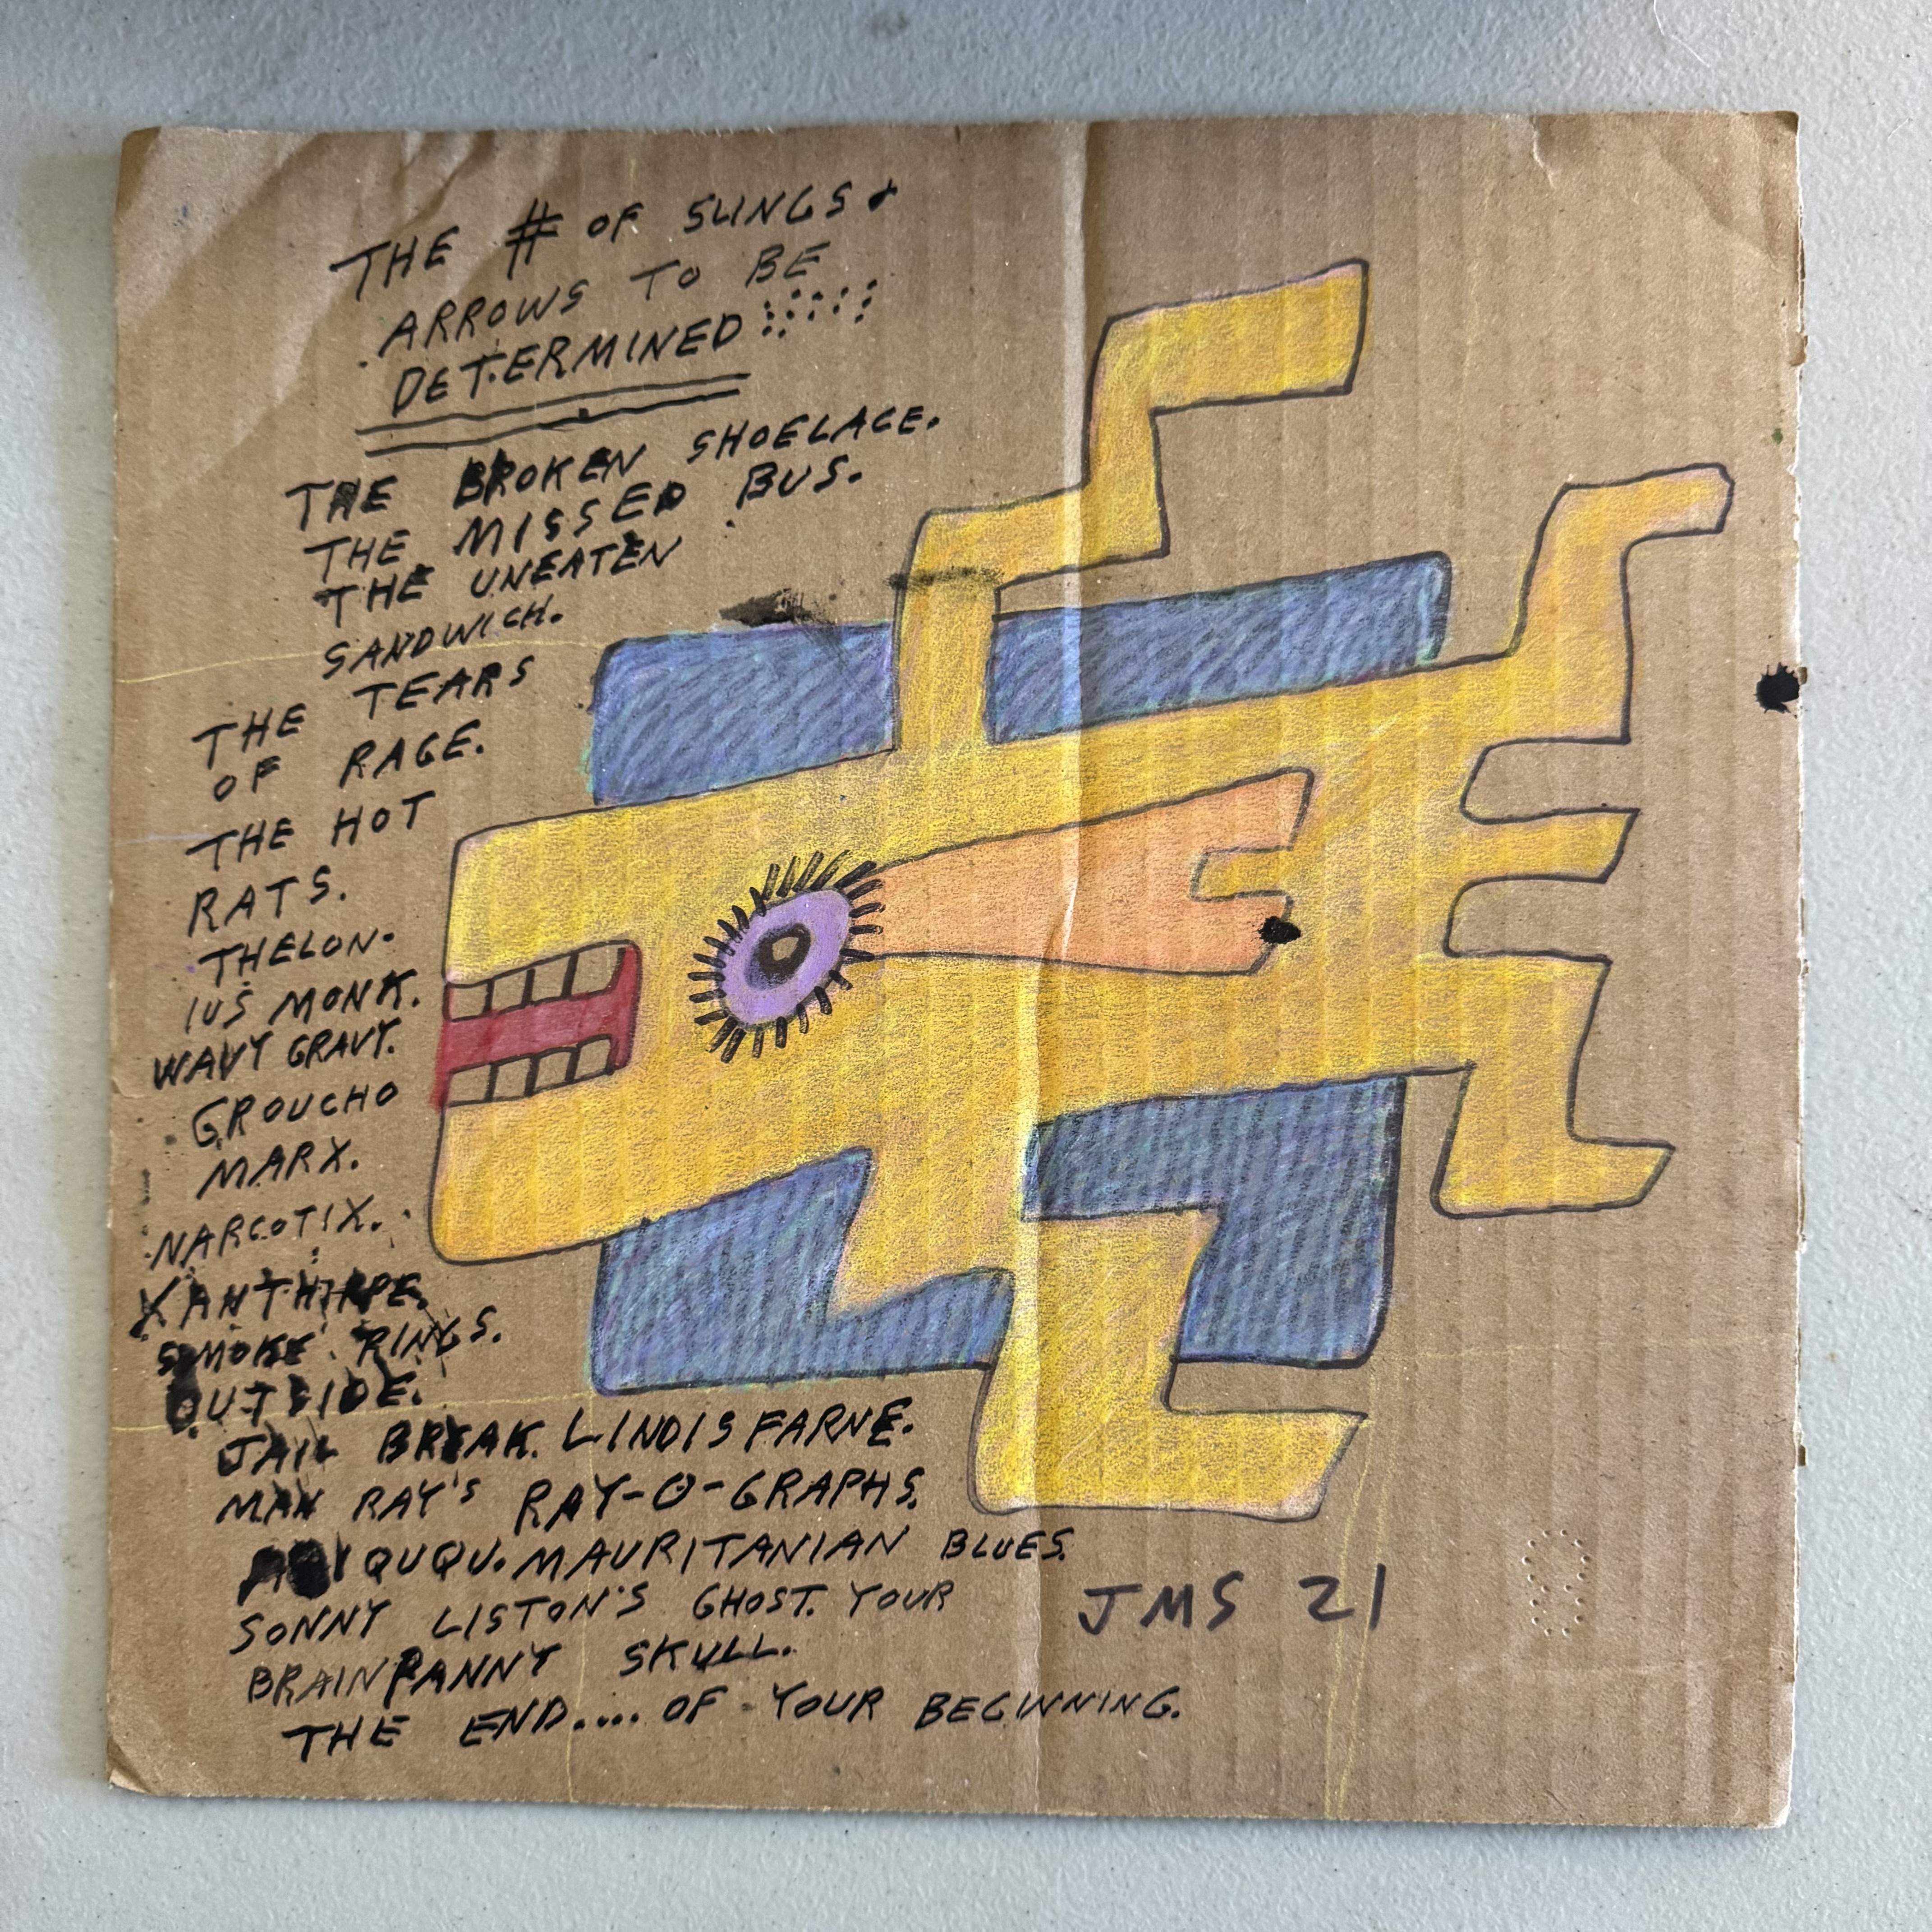 THE # OF SLINGS &
ARROWS TO BE
DETERMINED
THE BROKEN SHOELACE.
THE MISSED BUS.
THE UNEATEN
SANDWICH.
THE TEARS
OF RAGE.
THE HOT
RATS.
THELON-
IUS MONK.
WAVY GRAVY.
GROUCHO
MARX.
NARCOTIX.
XANTHIPPE.
SMOKE RINGS.
OUTSIDE.
JAIL BREAK. LINDISFARNE.
MAN RAY'S RAY-O-GRAPHS.
QUQU. MAURITANIAN BLUES.
SONNY LISTON'S GHOST. YOUR
BRAINPANNY SKULL.
THE END.... OF YOUR BEGINNING.
JMS 21